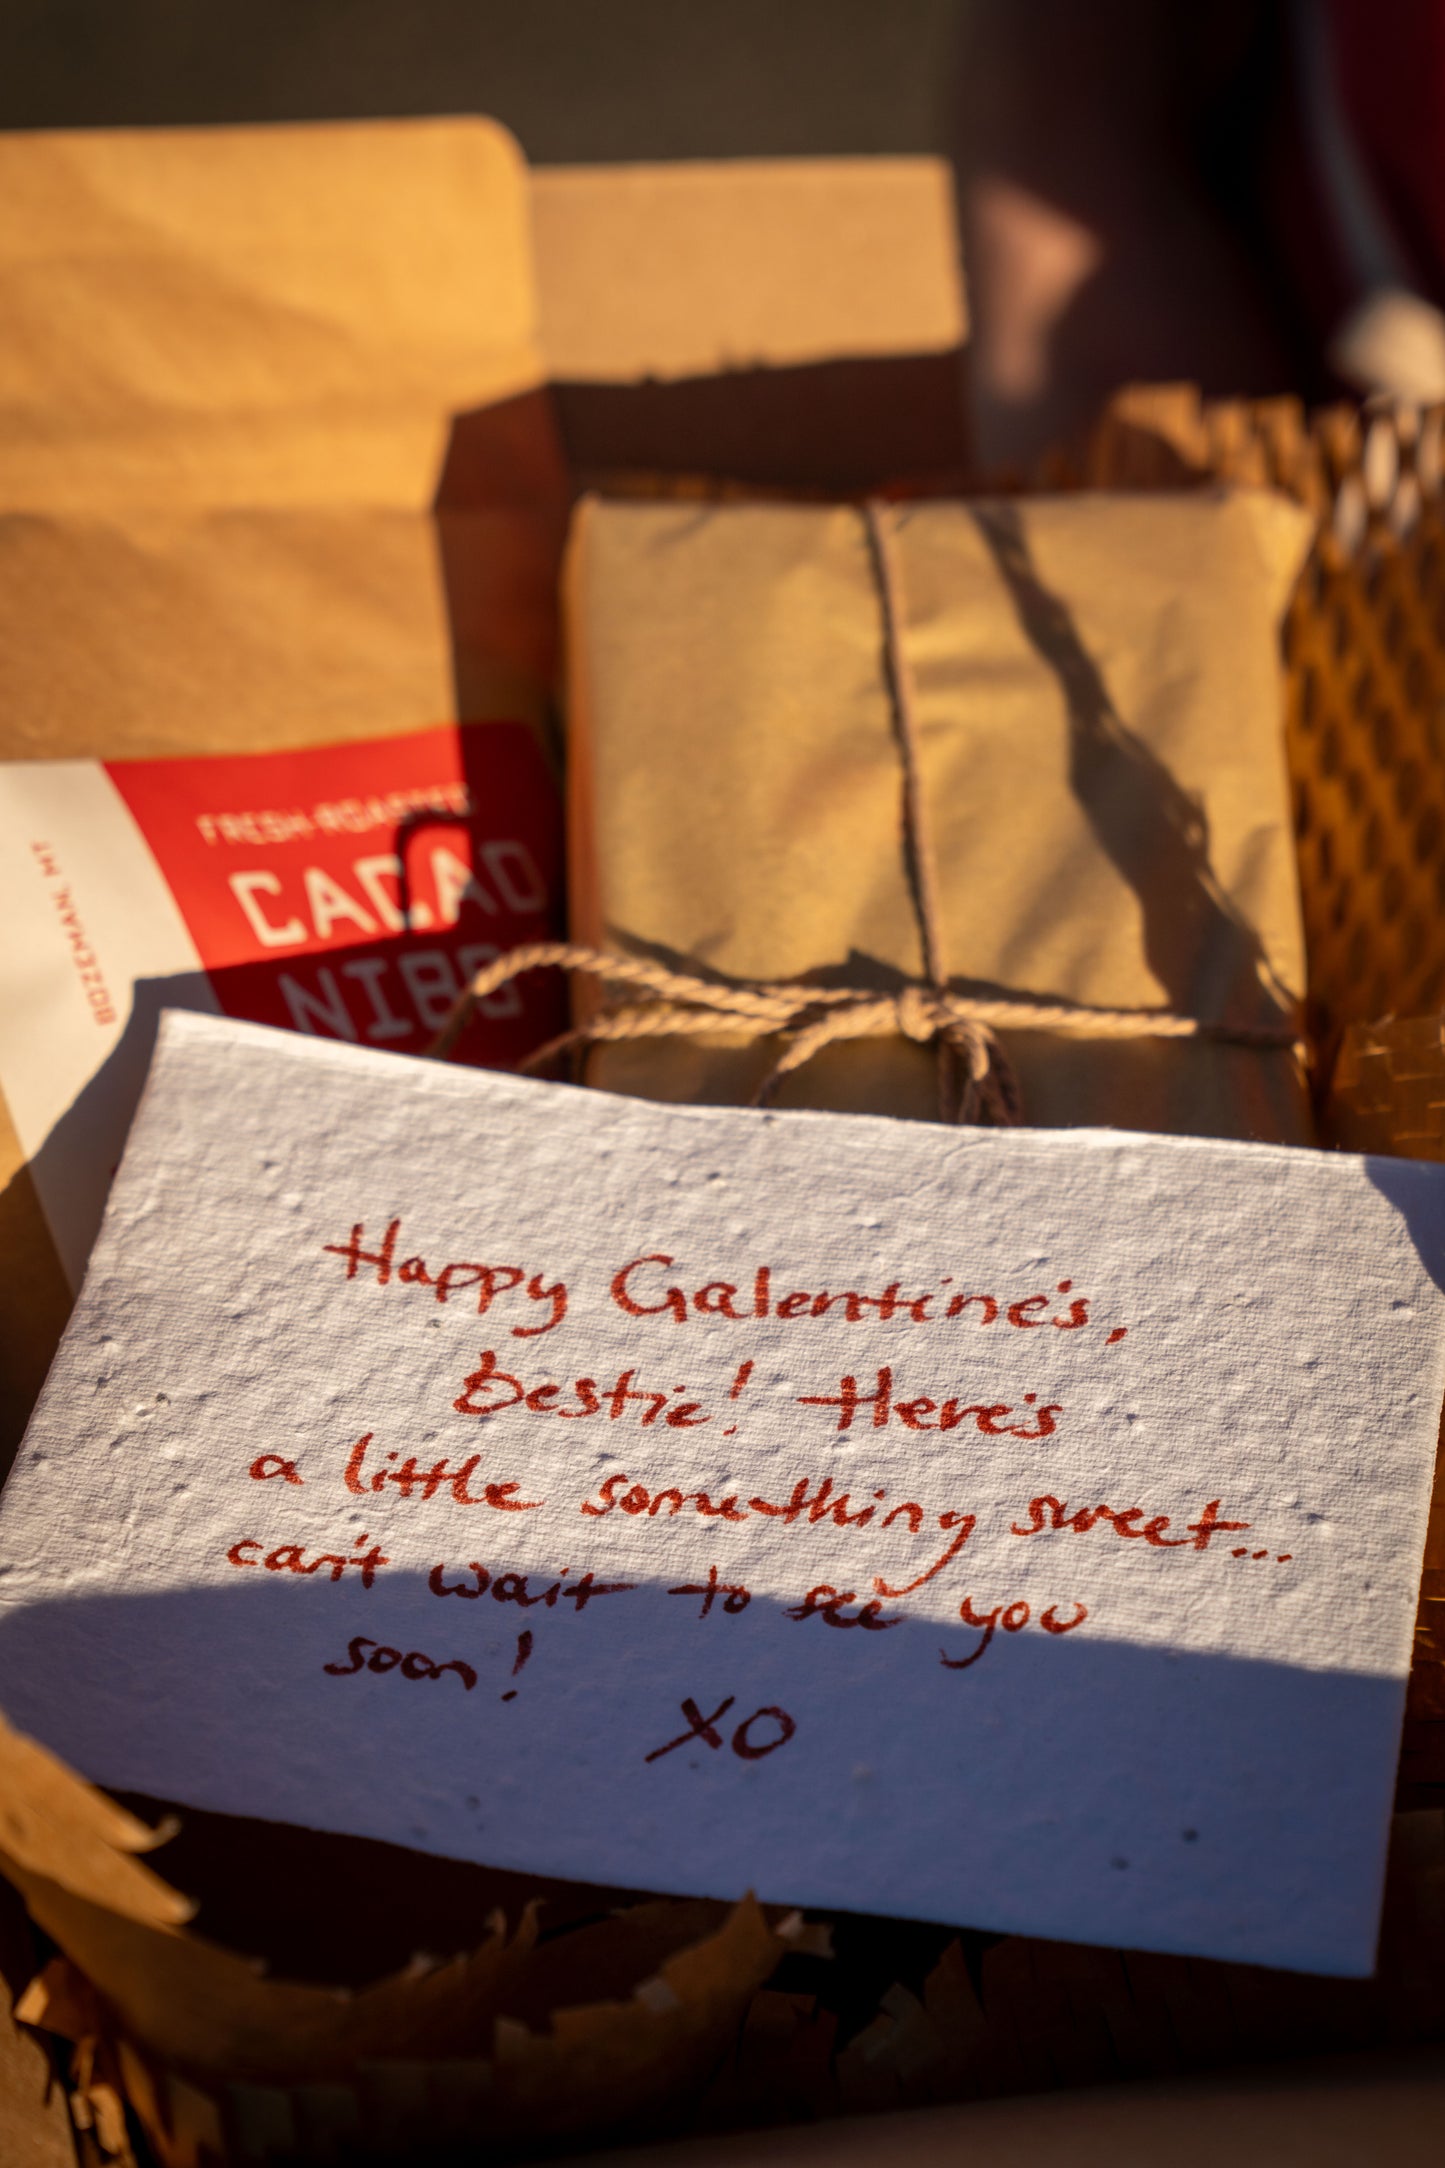 FRESH-ROASTED
CACAO
NIBS
BOZEMAN, MT
Happy Galentine's,
bestie! Here's
a little something sweet...
can't wait to see you
soon!
XO